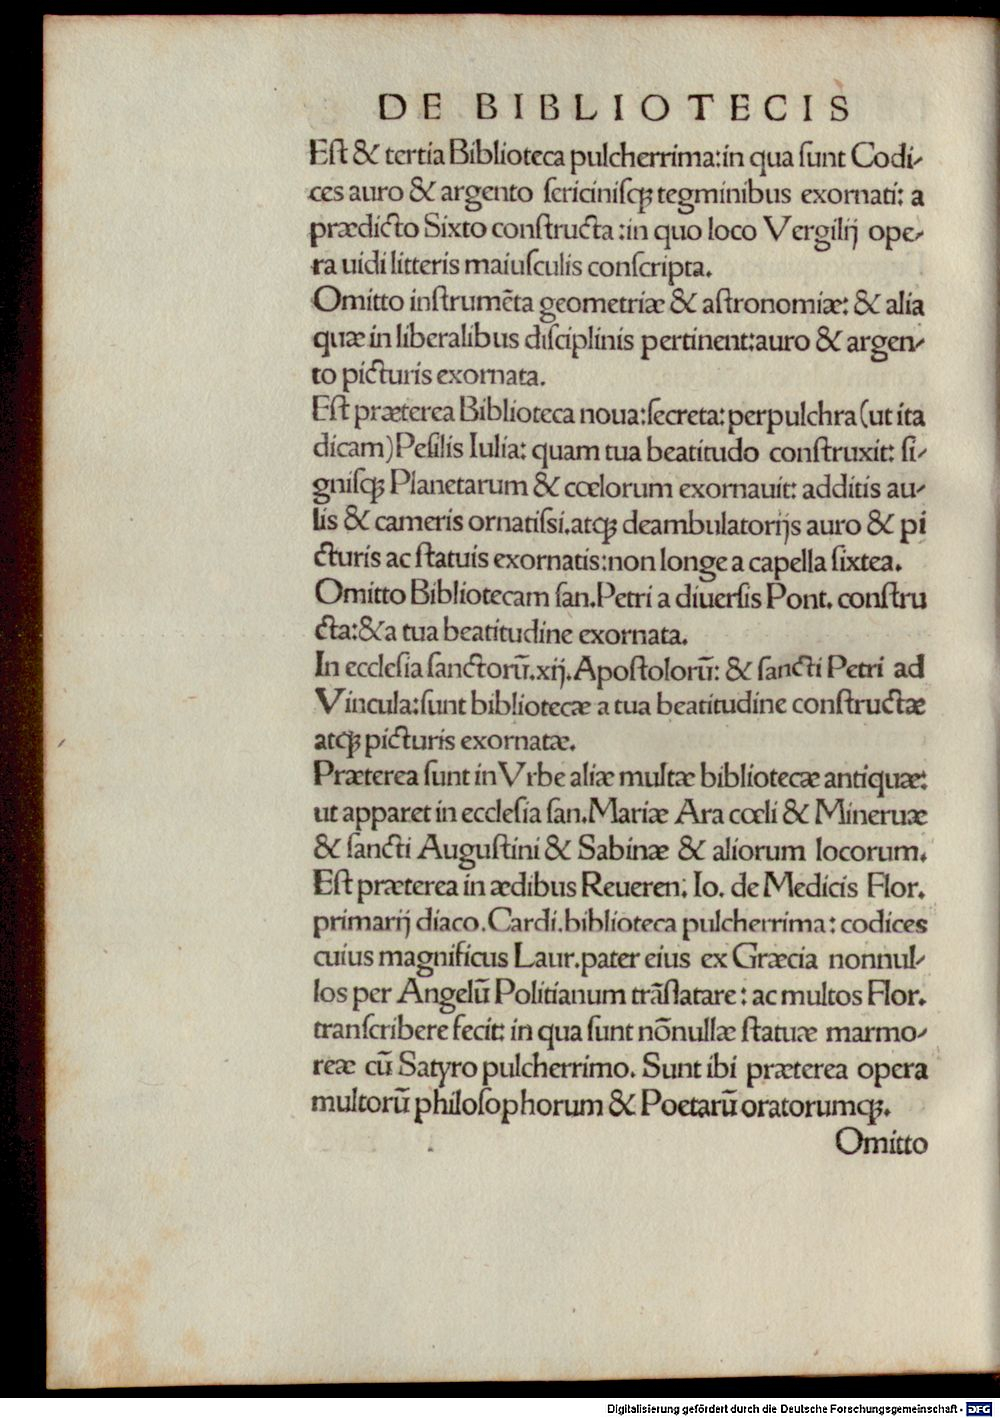 DE BIBLIOTECIS
Eſt & tertia Biblioteca pulcherrima:in qua ſunt Codi-
ces auro & argento ſericiniſqꝫ tegminibus exornati: a
prædicto Sixto conſtructa :in quo loco Vergilij ope-
ra uidi litteris maiuſculis conſcripta.
Omitto inſtrumēta geometriæ & aſtronomiæ: & alia
quæ in liberalibus diſciplinis pertinent:auro & argen-
to picturis exornata.
Eſt præterea Biblioteca noua:ſecreta: perpulchra (ut ita
dicam) Peſilis Iulia: quam tua beatitudo conſtruxit: ſi-
gniſqꝫ Planetarum & cœlorum exornauit: additis au-
lis & cameris ornatiſsi.atqꝫ deambulatorijs auro & pi
cturis ac ſtatuis exornatis:non longe a capella ſixtea.
Omitto Bibliotecam ſan.Petri a diuerſis Pont. conſtru
cta:& a tua beatitudine exornata.
In eccleſia ſanctorū.xij.Apoſtolorū: & ſancti Petri ad
Vincula:ſunt bibliotecæ a tua beatitudine conſtructæ
atqꝫ picturis exornatæ.
Præterea ſunt in Vrbe aliæ multæ bibliotecæ antiquæ:
ut apparet in eccleſia ſan.Mariæ Ara cœli & Mineruæ
& ſancti Auguſtini & Sabinæ & aliorum locorum.
Eſt præterea in ædibus Reueren. Io. de Medicis Flor.
primarij diaco.Cardi.biblioteca pulcherrima: codices
cuius magnificus Laur.pater eius ex Græcia nonnul-
los per Angelū Politianum trāſlatare: ac multos Flor.
tranſcribere fecit: in qua ſunt nōnullæ ſtatuæ marmo-
reæ cū Satyro pulcherrimo. Sunt ibi præterea opera
multorū philoſophorum & Poetarū oratorumqꝫ.
Omitto
Digitalisierung gefördert durch die Deutsche Forschungsgemeinschaft - DFG